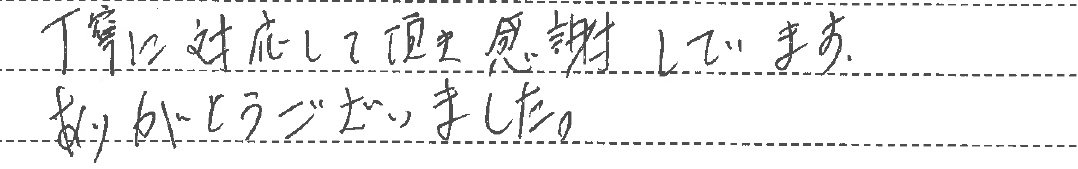 丁寧に対応して頂き感謝しています.
ありがとうございました。